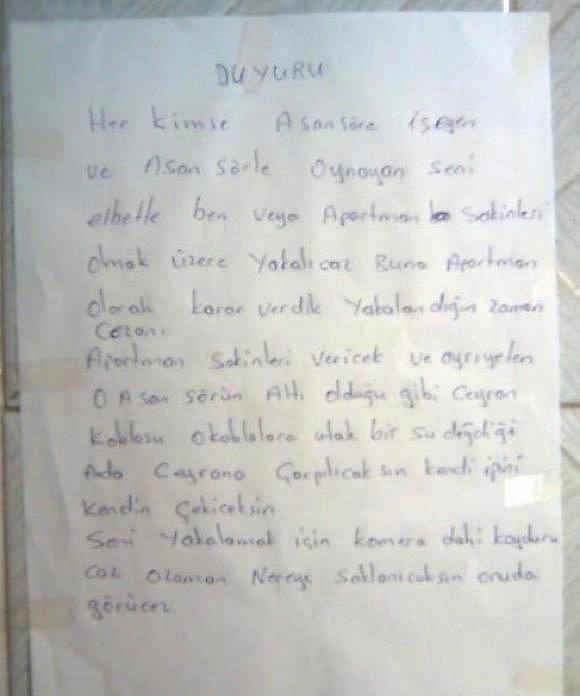 DUYURU
Her kimse Asansöre işeyen
ve Asansörle Oynayan seni
elbette ben veya Apartman Sakinleri
olmak üzere Yakalıcaz Buna Apartman
olarak karar verdik Yakalandığın zaman
Cezanı
Apartman Sakinleri vericek ve ayrıyeten
O Asansörün Altı olduğu gibi Ceyran
Kablosu Okablolara ufak bir su değdiği
Anda Ceyrana Çarpılıcaksın kendi ipini
kendin Çekiceksin
Seni Yakalamak için kamera dahi koyduru
caz Ozaman Nereye Saklanıcaksın onuda
görücez